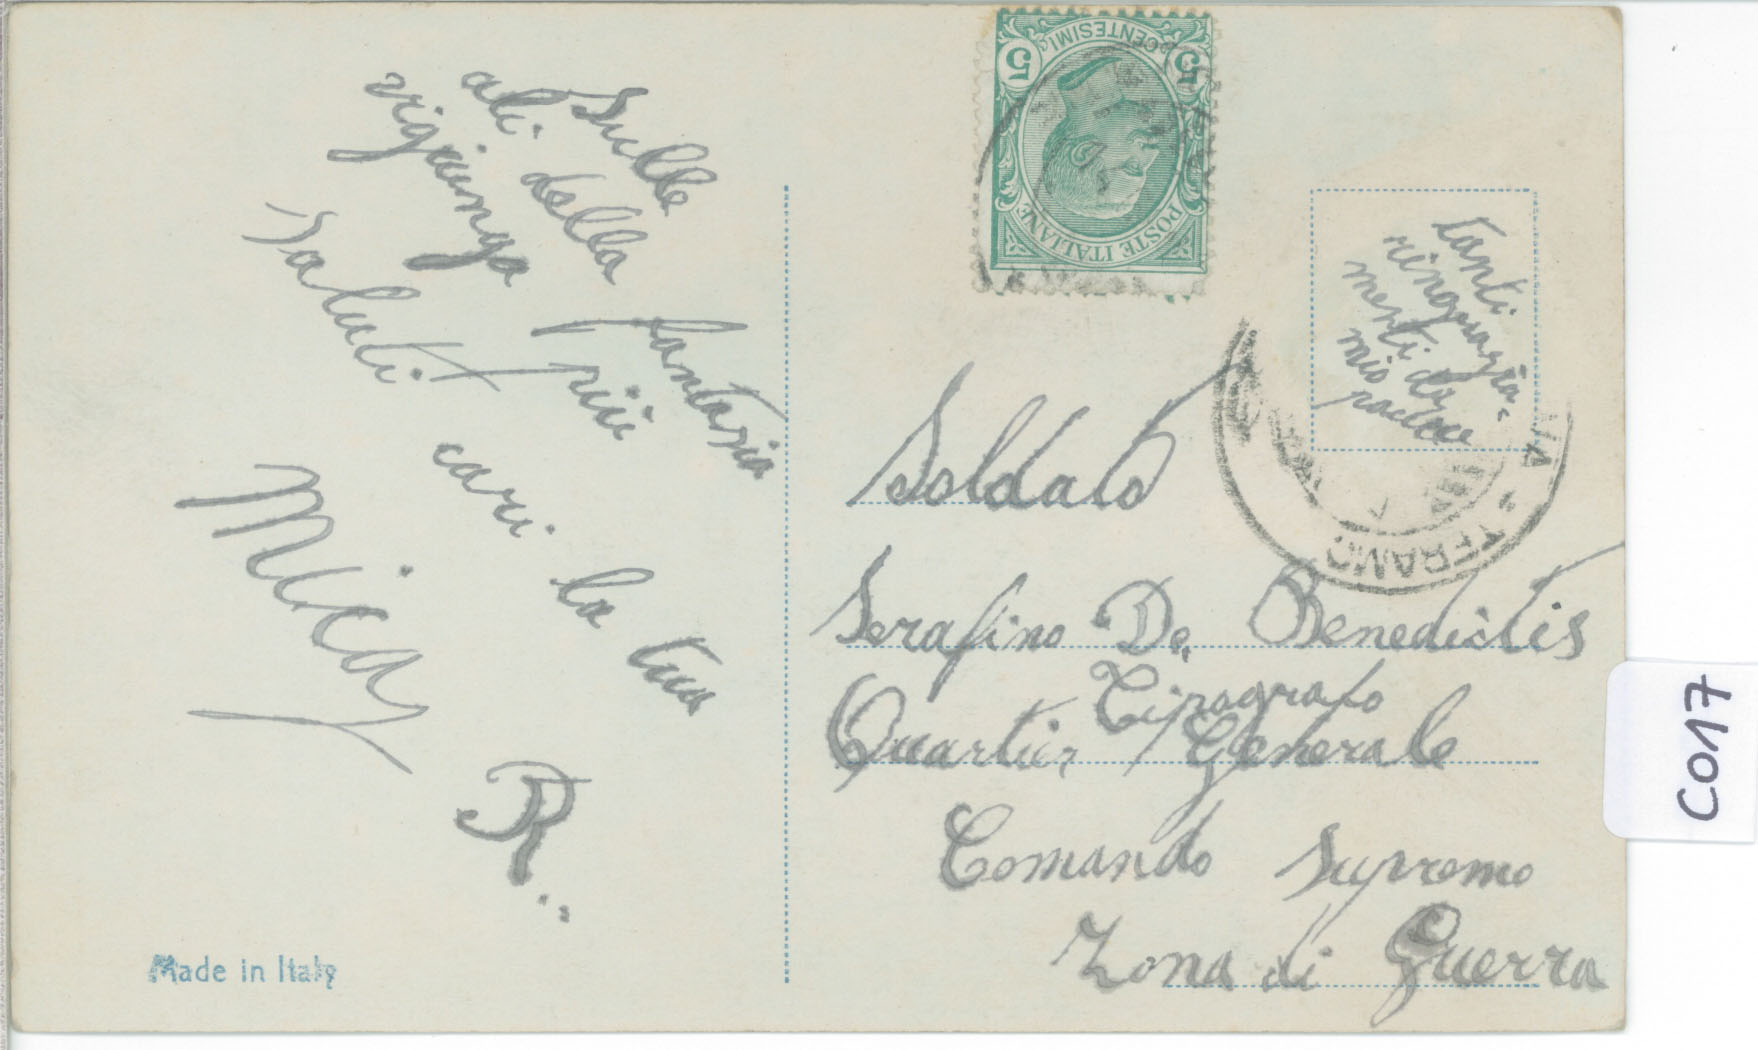 Sulle
ali della fantasia
vigiunga più
saluti cari la tua
Mica
R..
Made in Italy
POSTE ITALIANE
CENTESIMI
5 5
tanti
ringrazia-
menti di
mio
TERAMO
Soldato
Serafino De Benedictis
Tipografo
Quartier Generale
Comando Supremo
Zona di Guerra
CO17